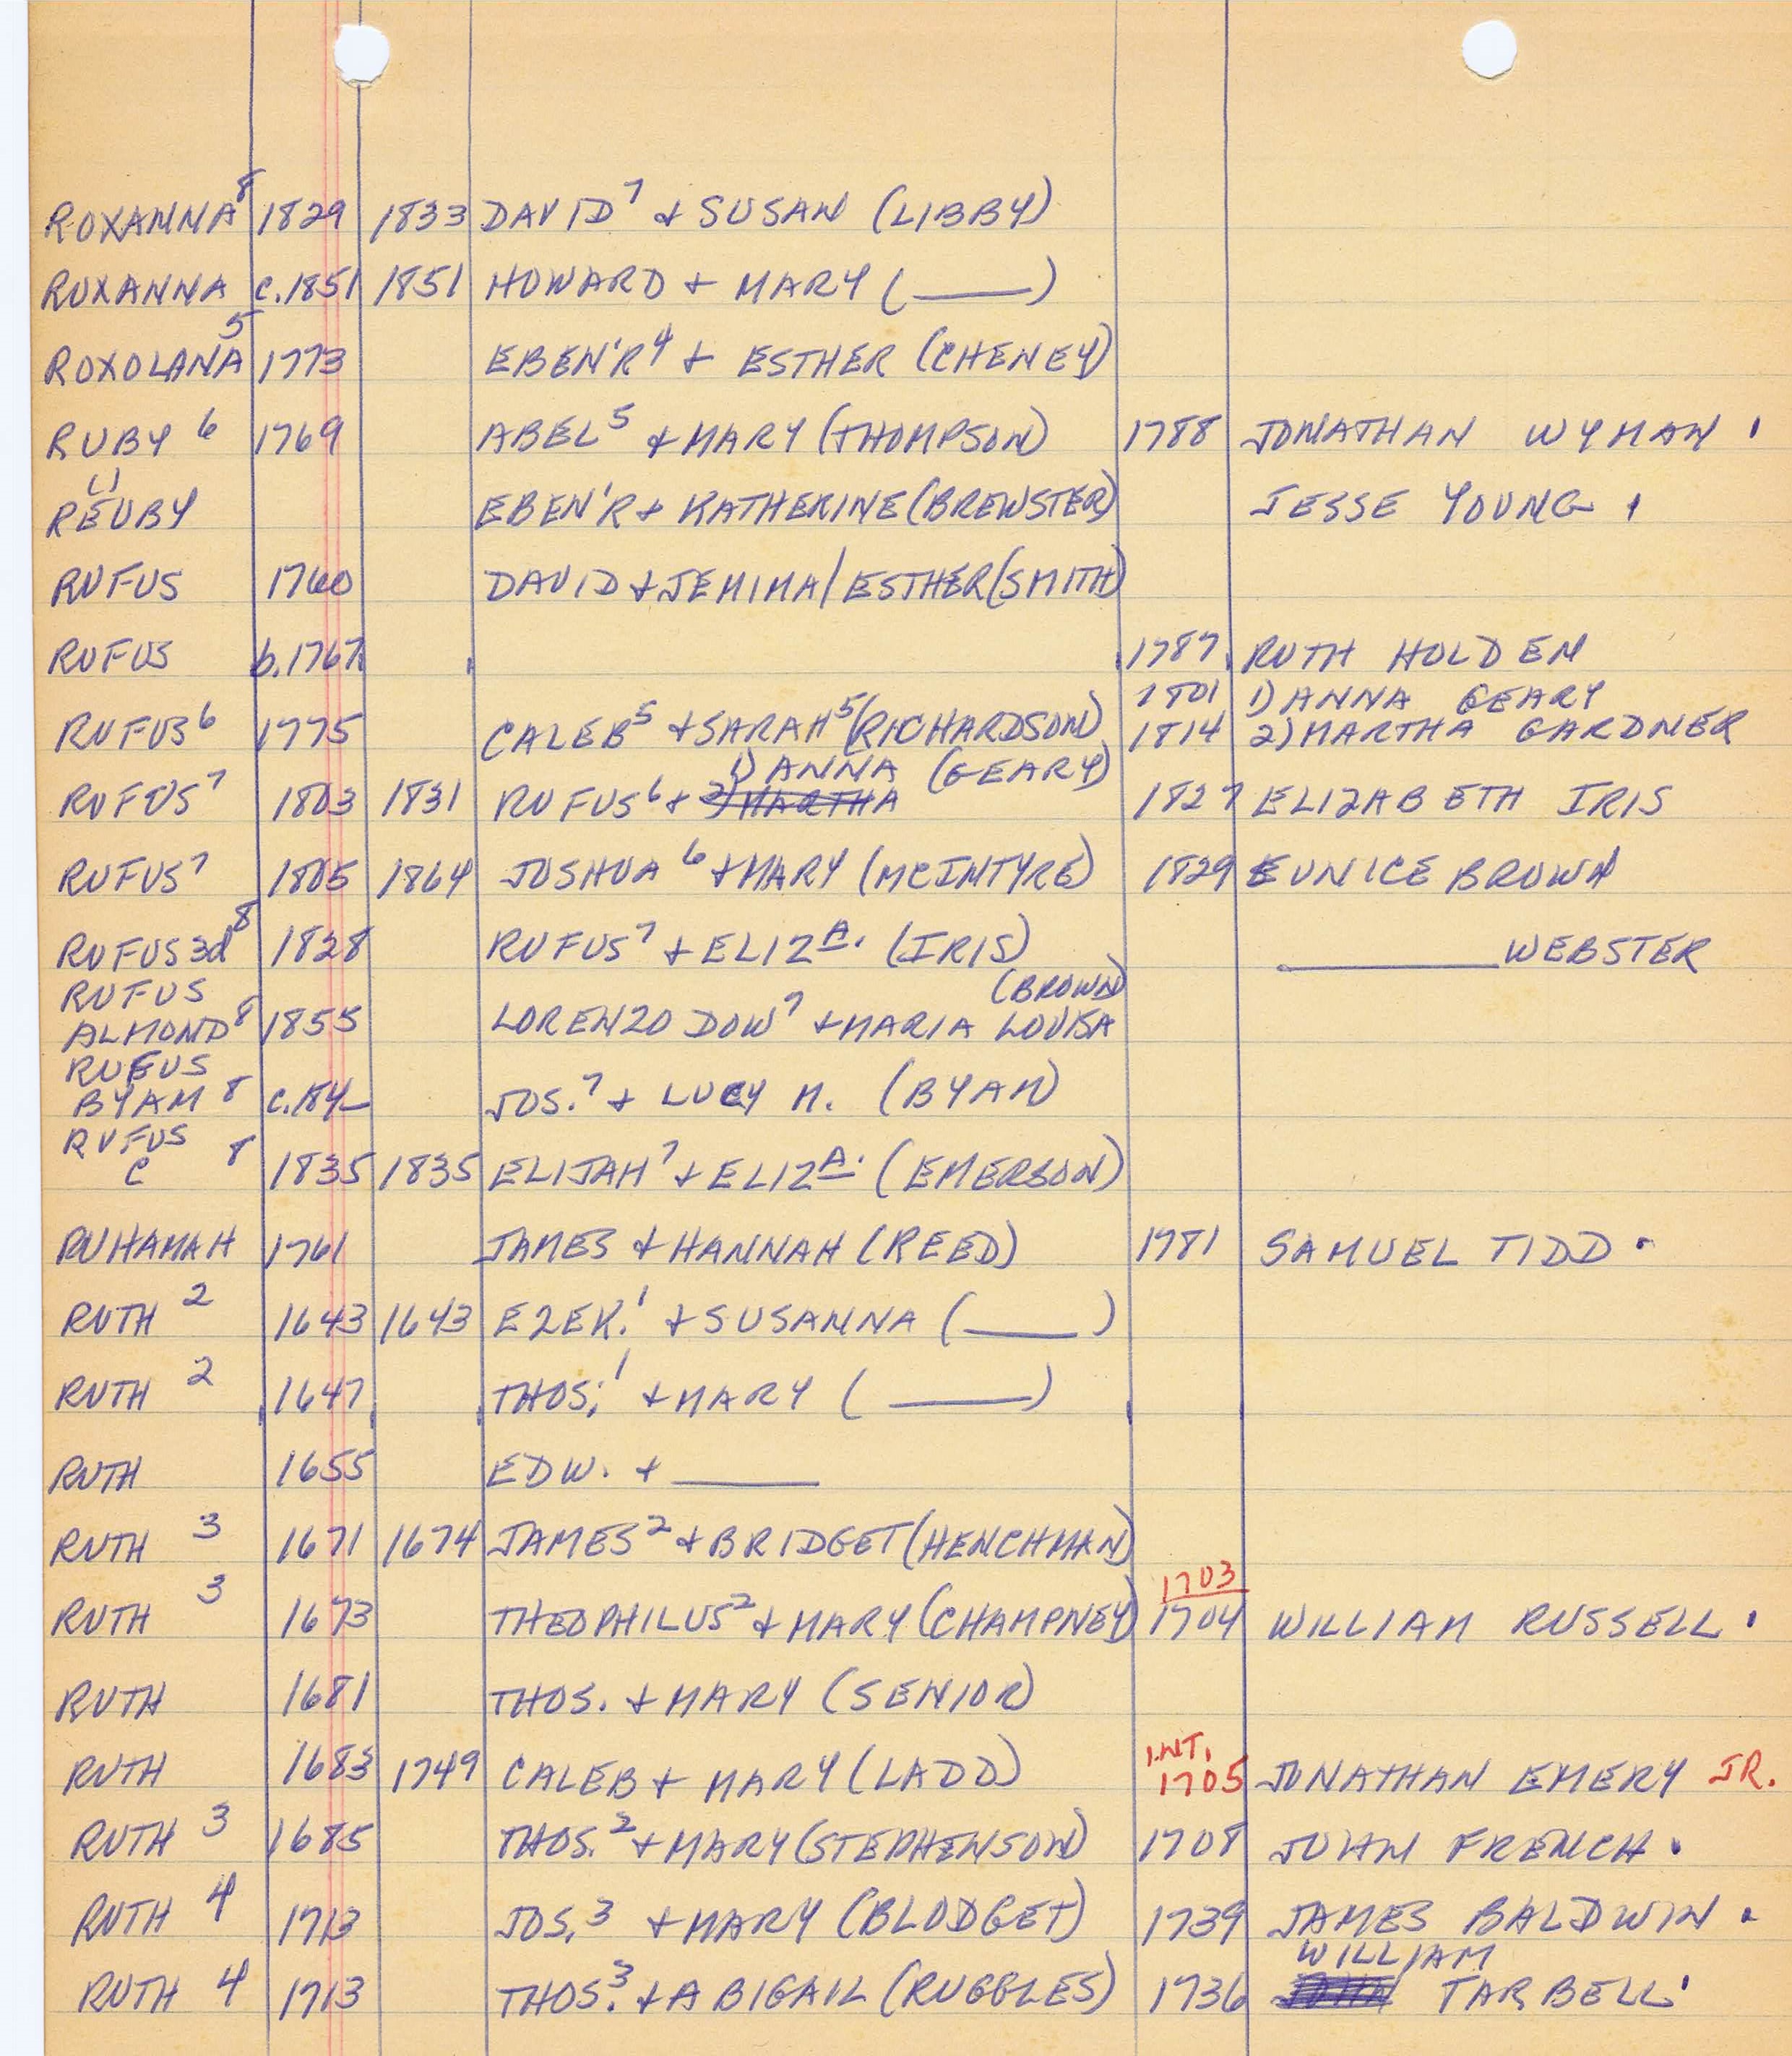 ROXANNA⁸ 1829 1833 DAVID⁷ & SUSAN (LIBBY)
ROXANNA c.1851 1851 HOWARD & MARY (____)
ROXOLANA⁵ 1773 EBEN'R⁴ & ESTHER (CHENEY)
RUBY⁶ 1769 ABEL⁵ & MARY (THOMPSON) 1788 JONATHAN WYMAN.
REUBY EBEN'R & KATHERINE (BREWSTER) JESSE YOUNG.
RUFUS 1760 DAVID & JEMIMA/ESTHER (SMITH)
RUFUS b.1767 1787 RUTH HOLDEN
1801 1) ANNA GEARY
RUFUS⁶ 1775 CALEB⁵ & SARAH⁵ (RICHARDSON) 1814 2) MARTHA GARDNER
1) ANNA (GEARY)
RUFUS⁷ 1803 1831 RUFUS⁶ & 2) MARTHA 1827 ELIZABETH IRIS
RUFUS⁷ 1805 1864 JOSHUA⁶ & MARY (MCINTYRE) 1829 EUNICE BROWN
RUFUS 3d⁸ 1828 RUFUS⁷ & ELIZA. (IRIS) ____ WEBSTER
RUFUS (BROWN)
ALMOND⁸ 1855 LORENZO DOW⁷ & MARIA LOUISA
RUFUS
BYAM⁸ c.184_ JOS.⁷ & LUCY M. (BYAM)
RUFUS
C⁸ 1835 1835 ELIJAH⁷ & ELIZA. (EMERSON)
RUHAMAH 1761 JAMES & HANNAH (REED) 1781 SAMUEL TIDD.
RUTH² 1643 1643 EZEK.¹ & SUSANNA (____)
RUTH² 1647 THOS.¹ & MARY (____)
RUTH 1655 EDW. & ____
RUTH³ 1671 1674 JAMES² & BRIDGET (HENCHMAN)
1703
RUTH³ 1673 THEOPHILUS² & MARY (CHAMPNEY) 1704 WILLIAM RUSSELL.
RUTH 1681 THOS. & MARY (SENIOR)
INT.
RUTH 1683 1749 CALEB & MARY (LADD) 1705 JONATHAN EMERY JR.
RUTH³ 1685 THOS.² & MARY (STEPHENSON) 1708 JOHN FRENCH.
RUTH⁴ 1713 JOS.³ & MARY (BLODGET) 1739 JAMES BALDWIN.
WILLIAM
RUTH⁴ 1713 THOS.³ & ABIGAIL (RUGGLES) 1736 TARBELL.